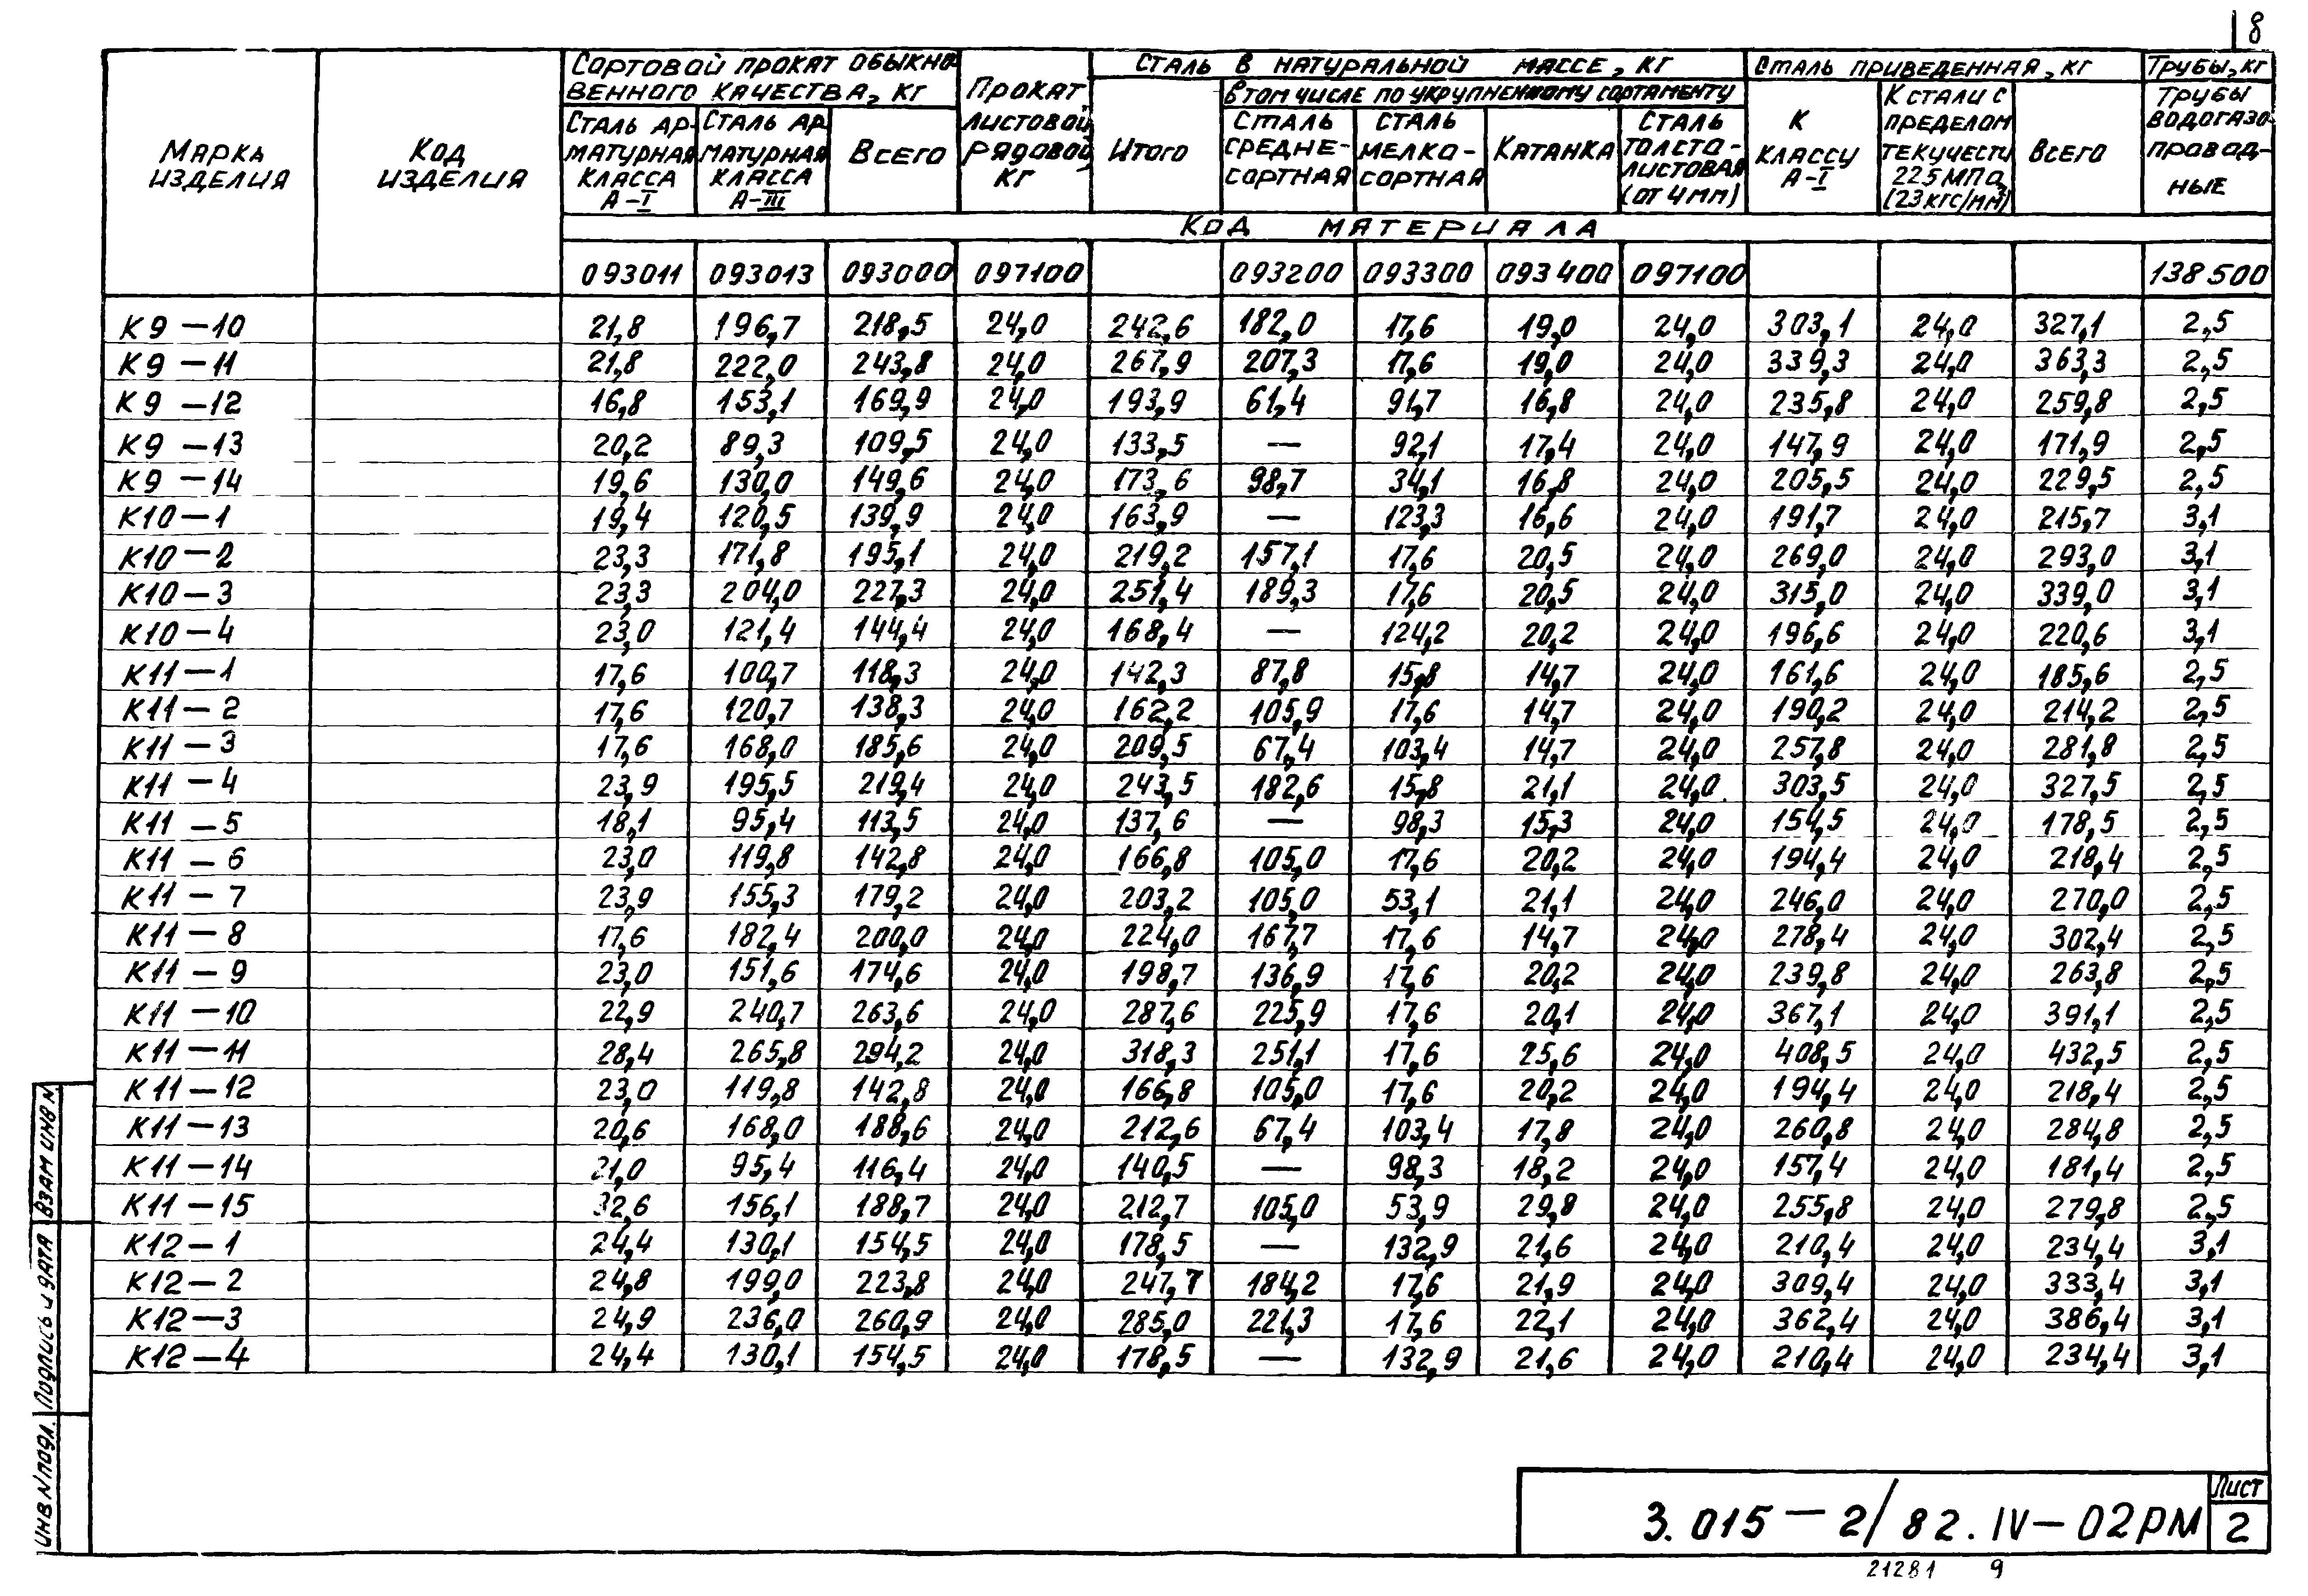 8
Сортовой прокат обыкно-
венного качества, кг
Прокат листовой рядовой кг
Сталь в натуральной массе, кг
Сталь приведенная, кг
Трубы, кг
Марка изделия
Код изделия
Сталь арматурная класса А-I
Сталь арматурная класса А-III
Всего
Итого
В том числе по укрупненному сортаменту
Сталь средне-сортная
Сталь мелко-сортная
Катанка
Сталь толсто-листовая (от 4мм)
К классу А-I
К стали с пределом текучести 225 МПа (23кгс/мм²)
Всего
Трубы водогазо-провод-ные
Код материала
093011 093013 093000 097100 093200 093300 093400 097100 138500
К9-10 21,8 196,7 218,5 24,0 242,6 182,0 17,6 19,0 24,0 303,1 24,0 327,1 2,5
К9-11 21,8 222,0 243,8 24,0 267,9 207,3 17,6 19,0 24,0 339,3 24,0 363,3 2,5
К9-12 16,8 153,1 169,9 24,0 193,9 61,4 91,7 16,8 24,0 235,8 24,0 259,8 2,5
К9-13 20,2 89,3 109,5 24,0 133,5 — 92,1 17,4 24,0 147,9 24,0 171,9 2,5
К9-14 19,6 130,0 149,6 24,0 173,6 98,7 34,1 16,8 24,0 205,5 24,0 229,5 2,5
К10-1 19,4 120,5 139,9 24,0 163,9 — 123,3 16,6 24,0 191,7 24,0 215,7 3,1
К10-2 23,3 171,8 195,1 24,0 219,2 157,1 17,6 20,5 24,0 269,0 24,0 293,0 3,1
К10-3 23,3 204,0 227,3 24,0 251,4 189,3 17,6 20,5 24,0 315,0 24,0 339,0 3,1
К10-4 23,0 121,4 144,4 24,0 168,4 — 124,2 20,2 24,0 196,6 24,0 220,6 3,1
К11-1 17,6 100,7 118,3 24,0 142,3 87,8 15,8 14,7 24,0 161,6 24,0 185,6 2,5
К11-2 17,6 120,7 138,3 24,0 162,2 105,9 17,6 14,7 24,0 190,2 24,0 214,2 2,5
К11-3 17,6 168,0 185,6 24,0 209,5 67,4 103,4 14,7 24,0 257,8 24,0 281,8 2,5
К11-4 23,9 195,5 219,4 24,0 243,5 182,6 15,8 21,1 24,0 303,5 24,0 327,5 2,5
К11-5 18,1 95,4 113,5 24,0 137,6 — 98,3 15,3 24,0 154,5 24,0 178,5 2,5
К11-6 23,0 119,8 142,8 24,0 166,8 105,0 17,6 20,2 24,0 194,4 24,0 218,4 2,5
К11-7 23,9 155,3 179,2 24,0 203,2 105,0 53,1 21,1 24,0 246,0 24,0 270,0 2,5
К11-8 17,6 182,4 200,0 24,0 224,0 167,7 17,6 14,7 24,0 278,4 24,0 302,4 2,5
К11-9 23,0 151,6 174,6 24,0 198,7 136,9 17,6 20,2 24,0 239,8 24,0 263,8 2,5
К11-10 22,9 240,7 263,6 24,0 287,6 225,9 17,6 20,1 24,0 367,1 24,0 391,1 2,5
К11-11 28,4 265,8 294,2 24,0 318,3 251,1 17,6 25,6 24,0 408,5 24,0 432,5 2,5
К11-12 23,0 119,8 142,8 24,0 166,8 105,0 17,6 20,2 24,0 194,4 24,0 218,4 2,5
К11-13 20,6 168,0 188,6 24,0 212,6 67,4 103,4 17,8 24,0 260,8 24,0 284,8 2,5
К11-14 21,0 95,4 116,4 24,0 140,5 — 98,3 18,2 24,0 157,4 24,0 181,4 2,5
К11-15 32,6 156,1 188,7 24,0 212,7 105,0 53,9 29,8 24,0 255,8 24,0 279,8 2,5
К12-1 24,4 130,1 154,5 24,0 178,5 — 132,9 21,6 24,0 210,4 24,0 234,4 3,1
К12-2 24,8 199,0 223,8 24,0 247,7 184,2 17,6 21,9 24,0 309,4 24,0 333,4 3,1
К12-3 24,9 236,0 260,9 24,0 285,0 221,3 17,6 22,1 24,0 362,4 24,0 386,4 3,1
К12-4 24,4 130,1 154,5 24,0 178,5 — 132,9 21,6 24,0 210,4 24,0 234,4 3,1
Инв N подл. Подпись и дата Взам инв N
3.015-2/82.IV-02РМ
Лист
2
21281 9